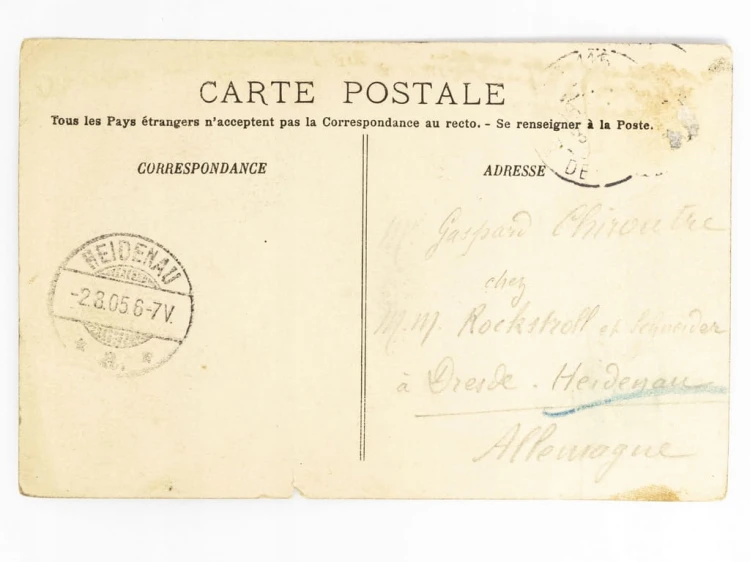 CARTE POSTALE
Tous les Pays étrangers n'acceptent pas la Correspondance au recto. - Se renseigner à la Poste.
CORRESPONDANCE
ADRESSE
DE
HEIDENAU
-2.8.05.6-7V.
* a. *
Mr Gaspard Chiroutre
chez
M.M. Rockstroll et Schneider
à Dresde - Heidenau
Allemagne